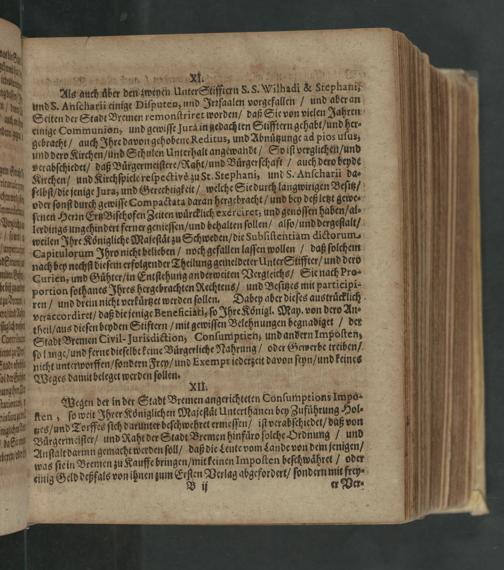 XI.
Als auch über den zweyen UnterStifftern S. S. Wilhadi & Stephani,
und S. Anscharii einige Disputen, und Irrsaalen vorgefallen / und aber an
Seiten der Stadt Bremen remonstriret worden / daß Sie von vielen Jahren
einige Communion, und gewisse Jura in gedachten Stifftern gehabt / und her-
gebracht / auch Ihre davon gehobene Reditus, und Abnützunge ad pios usus,
und dero Kirchen / und Schulen Unterhalt angewandt / So ist verglichen / und
verabschiedet / daß Bürgermeistere / Raht / und Bürgerschaft / auch dero beyde
Kirchen / und Kirchspiele respectivè zu St. Stephani, und S. Anscharii da-
selbst / die jenige Jura, und Gerechtigkeit / welche Sie durch langwirigen Besitz /
oder sonst durch gewisse Compactata daran hergebracht / und bey deß letzt gewe-
senen Herrn ErtzBischofen Zeiten würcklich exerciret, und genossen haben / al-
lerdings ungehindert ferner geniessen / und behalten sollen / also / und dergestalt /
weilen Ihre Königliche Majestät zu Schweden / die Subsistentiam dictorum
Capitulorum Ihro nicht belieben / noch gefallen lassen wollen / daß solchem
nach bey nechst diesem erfolgender Theilung gemeldeter UnterStiffter / und dero
Curien, und Gühter / in Entstehung anderweiten Vergleichs / Sie nach Pro-
portion sothanes Ihres hergebrachten Rechtens / und Besitzes mit participi-
ren / und drein nicht verkürtzet werden sollen. Dabey aber dieses austrücklich
veraccordiret / daß die jenige Beneficiati, so Ihre Königl. May. von dero An-
theil / aus diesen beyden Stiftern / mit gewissen Belehnungen begnadiget / der
Stadt Bremen Civil-Jurisdiction, Consumptien, und andern Imposten,
so lange / und ferne dieselbe keine Bürgerliche Nahrung / oder Gewerbe treiben /
nicht unterworffen / sondern Frey / und Exempt iederzeit davon seyn / und keines
Weges damit beleget werden sollen.
XII.
Wegen der in der Stadt Bremen angerichteten Consumptions Impo-
sten, so weit Ihrer Königlichen Majestät Unterthanen bey Zuführung Hol-
tzes / und Torffes sich darunter beschwehret ermessen / ist verabschiedet / daß von
Bürgermeister / und Raht der Stadt Bremen hinfüro solche Ordnung / und
Anstalt darinn gemacht werden soll / daß die Leute vom Lande von dem jenigen /
was sie in Bremen zu Kauffe bringen / mit keinen Imposten beschwähret / oder
einig Geld deßfals von ihnen zum Ersten Verlag abgefordert / sondern mit frey-
B ij
er Ver-